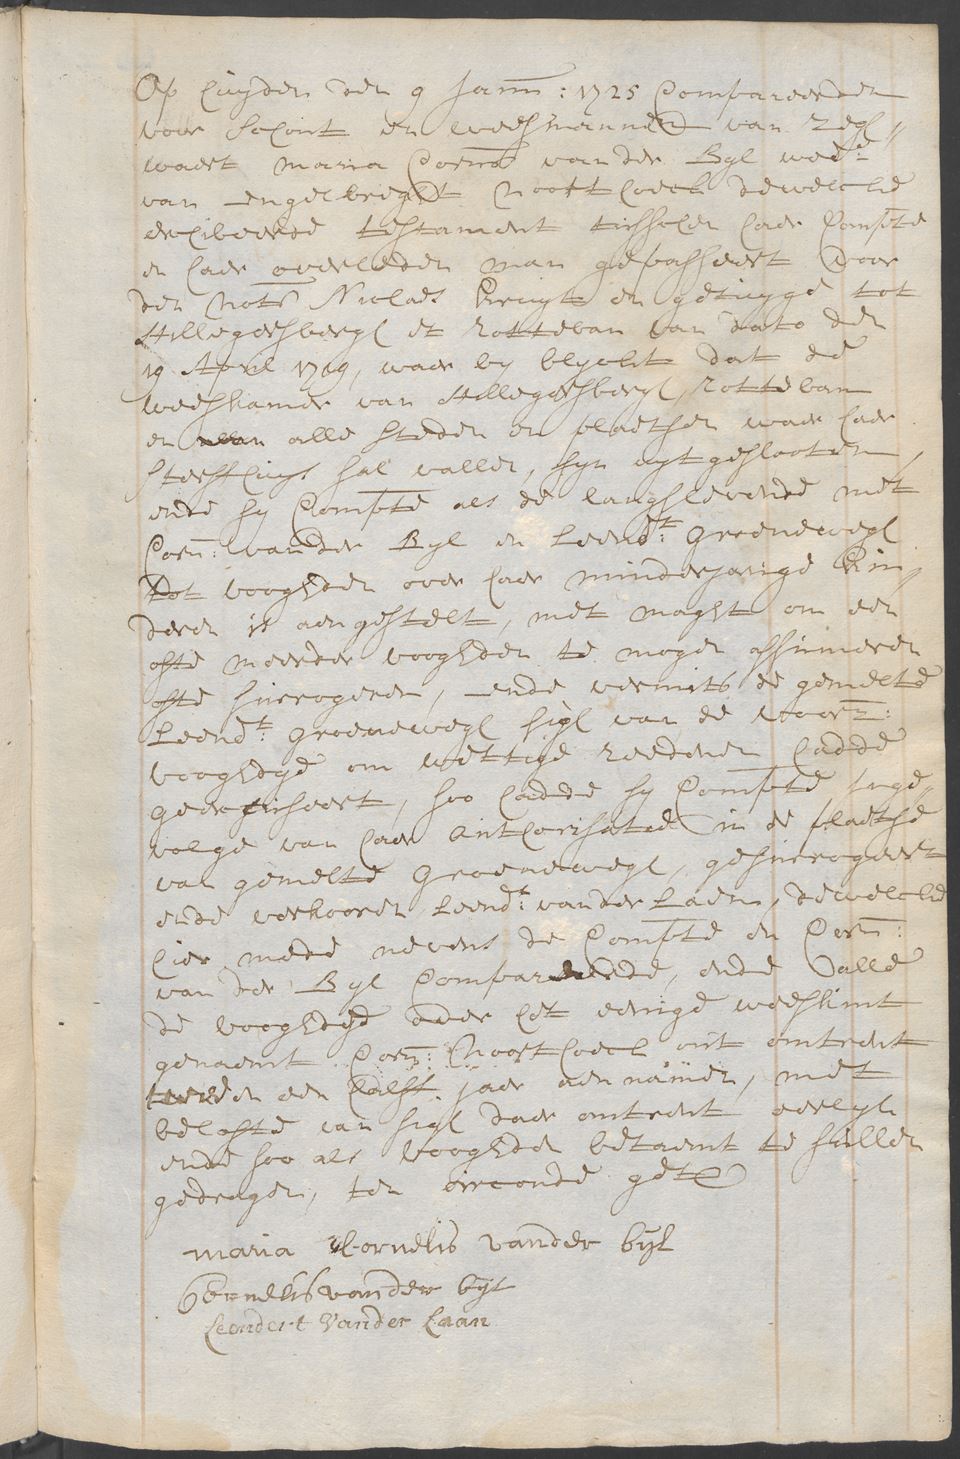 Op huijden den 9 Janu: 1725 Compareerden
voor Schout en weesmannen van Zegh„
waert maria Corns van der Byl wede
van Engelbreght Noort hoeck dewelcke
exhibeerde testament tusschen haer Compte
en haer overleden man gepasseert voor
den Nots Nicolaes Kruyt en getuyge tot
Hillegersbergh et Rotteban van dato den
19 April 1719, waer by blyckt dat de
weeskamer van Hillegersbergh, Rotteban
en alle steden en plaetsen waer haer
sterfhuys sal vallen, syn uytgeslooten,
ende sy Compte als de langhslevende met
Corn: vander Byl en Leendt: Groenewegh
tot vooghden over haer minderjarige Kin„
deren is aengestelt, met maght om een
ofte meerder vooghden te mogen assumeren
ofte surrogeren, ende vermits de gemelte
Leendt: Groenewegh sigh van de voorn:
vooghdye om wettige reedenen hadde
geexcuseert, soo hadde sy Compte inge„
volge van haer authorisatie in de plaetse
van gemelte Groenewegh, gesurrogeert
ende verkooren Leendt: vander Laen, dewelcke
hier mede nevens de Compte en Corn:
van der Byl Compareerde, ende alle
de vooghdye over het eenige weeskint
genaemt Corn: Noorthoeck out omtrent
een half jaer aennamen, met
belofte van sigh daer omtrent eerlyk
ende soo als vooghden betaemt te sullen
gedragen, ten oirconde get
maria Cornelis vander bijl
Cornelis vander bijl
Leendert Vander Laan